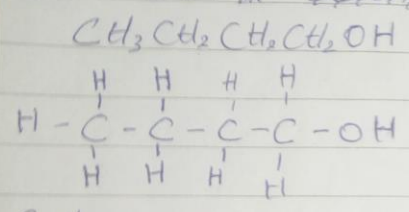 CH3 CH2 CH2 CH2 OH
H H H H
H - C - C - C - C - OH
H H H H